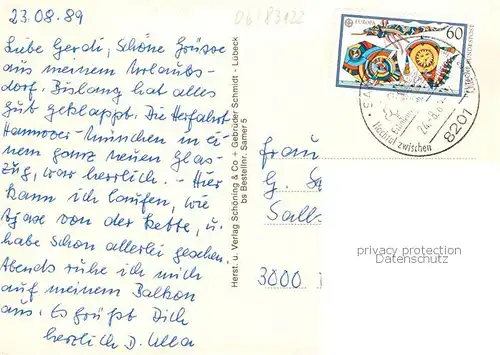 23.08.89
06/83122
Liebe Gerdi, Schöne Grüsse
aus meinem Urlaubs-
dorf. Bislang hat alles
gut geklappt. Die Herfahrt
Hannover-München in ei
nem ganz neuen Glas-
zug, war herrlich. - Hier
kann ich laufen, wie
von der Kette, u.
habe schon allerlei gesehen.
Abends ruhe ich mich
auf meinem Balkon
aus. Es grüßt Dich
herzlich D. Ulla
Herst. u. Verlag Schöning & Co + Gebrüder Schmidt - Lübeck
bs Bestellnr. Samer 5
EUROPA
60
DEUTSCHE BUNDESPOST
24.-8.89
Hochruf zwischen
8201
Frau
G.
Sall
3000
privacy protection
Datenschutz